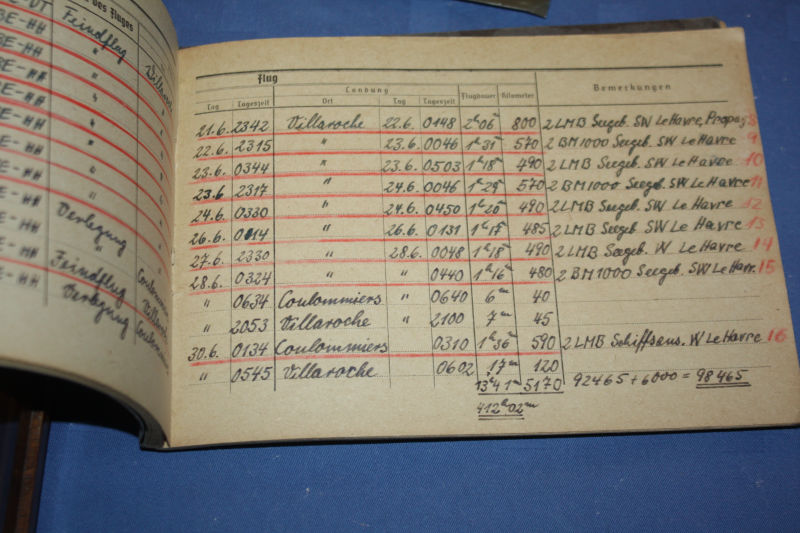 des Fluges
Feindflug
BE-HH "
BE-HH "
BE-HH "
BE-HH "
BE-HH "
BE-HH "
BE-HH Verlegung
BE-HH "
BE-HH Feindflug Coulommiers
BE-HH Verlegung Coulommiers
Flug
Landung
Tag Tageszeit Ort Tag Tageszeit Flugdauer Kilometer Bemerkungen
21.6. 2342 Villaroche 22.6. 0148 2h06m 800 2 LMB Seegeb. SW Le Havre, Propag. 8
22.6. 2315 " 23.6. 0046 1h31m 570 2 BM1000 Seegeb. SW Le Havre 9
23.6. 0344 " 23.6. 0503 1h18m 490 2 LMB Seegeb. SW Le Havre 10
23.6 2317 " 24.6. 0046 1h29m 570 2 BM1000 Seegeb. SW Le Havre 11
24.6. 0330 " 24.6. 0450 1h20m 490 2 LMB Seegeb. SW Le Havre 12
26.6. 0014 " 26.6. 0131 1h17m 485 2 LMB Seegeb. SW Le Havre 13
27.6. 2330 " 28.6. 0048 1h18m 490 2 LMB Seegeb. W Le Havre 14
28.6. 0324 " " 0440 1h16m 480 2 BM1000 Seegeb. SW Le Havr. 15
" 0634 Coulommiers " 0640 6m 40
" 2053 Villaroche " 2100 7m 45
30.6. 0134 Coulommiers 0310 1h36m 590 2 LMB Schiffsans. W Le Havre 16
" 0545 Villaroche 0602 17m 120
13h41m 5170 92465 + 6000 = 98465
412h02m